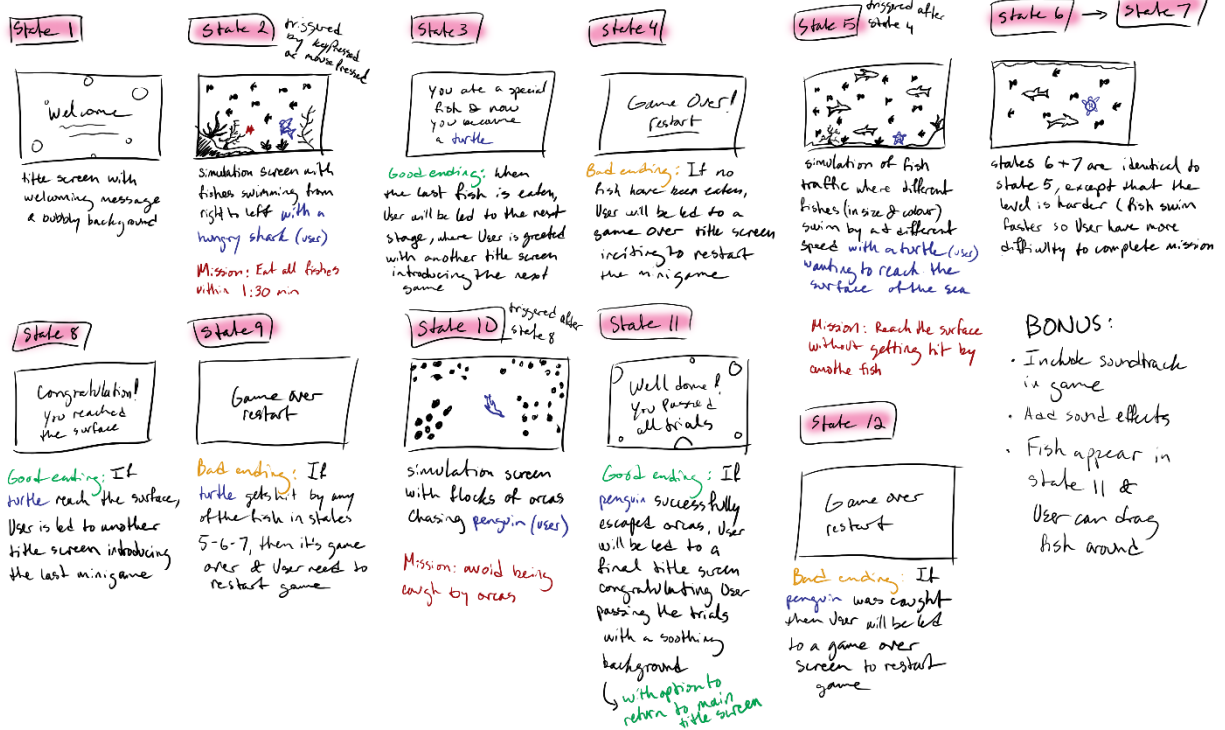 State 1
Welcome
title screen with
welcoming message
a bubbly background
State 2
triggered
by keyPressed
or mousePressed
simulation screen with
fishes swimming from
right to left with a
hungry shark (user)
Mission: Eat all fishes
within 1:30 min
State 3
You ate a special
fish & now
you become
a turtle
Good ending: When
the last fish is eaten,
User will be led to the next
stage, where User is greeted
with another title screen
introducing the next
game
State 4
Game Over!
restart
Bad ending: If no
fish have been eaten,
User will be led to a
game over title screen
inciting to restart
the minigame
State 5
triggered after
state 4
simulation of fish
traffic where different
fishes (in size & colour)
swim by at different
speed with a turtle (user)
wanting to reach the
surface of the sea
Mission: Reach the surface
without getting hit by
anothe fish
State 6 → State 7
states 6 + 7 are identical to
state 5, except that the
level is harder (fish swim
faster so User have more
difficulty to complete mission
State 8
Congratulation!
You reached
the surface
Good ending: If
turtle reach the surface,
User is led to another
title screen introducing
the last minigame
State 9
Game over
restart
Bad ending: If
turtle gets hit by any
of the fish in states
5-6-7, then it's game
over & User need to
restart game
State 10
triggered after
state 8
simulation screen
with flocks of orcas
chasing penguin (user)
Mission: avoid being
caugh by orcas
State 11
Well done!
You passed
all trials
Good ending: If
penguin successfully
escaped orcas, User
will be led to a
final title screen
congratulating User
passing the trials
with a soothing
background
↳ with option to
return to main
title screen
State 12
Game over
restart
Bad ending: If
penguin was caught
then User will be led
to a game over
screen to restart
game
BONUS:
· Include soundtrack
in game
· Add sound effects
· Fish appear in
state 11 &
User can drag
fish around